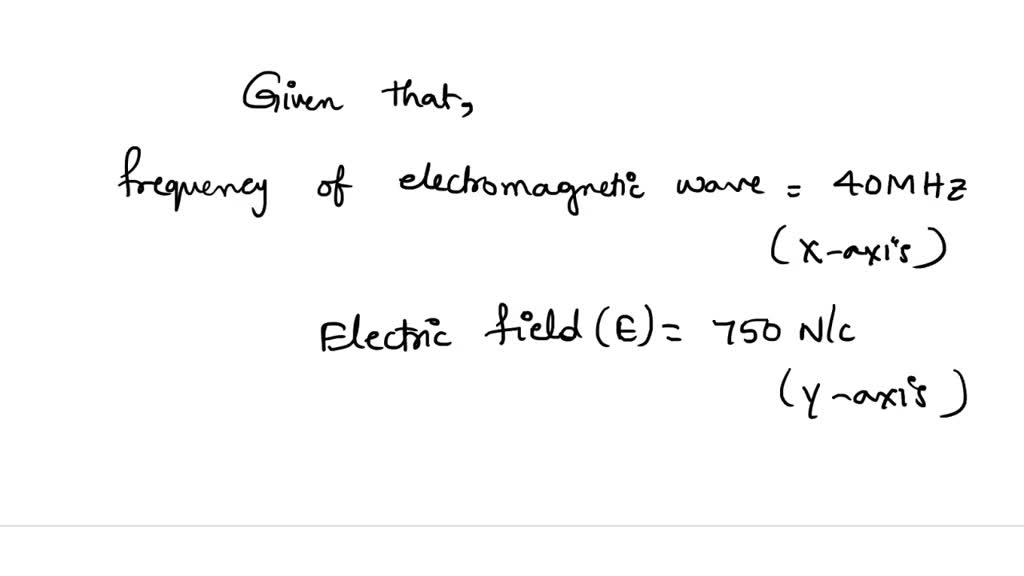 Given that,
frequency of electromagnetic wave = 40MHZ
(x-axis)
Electric field (E) = 750 N/c
(y-axis)